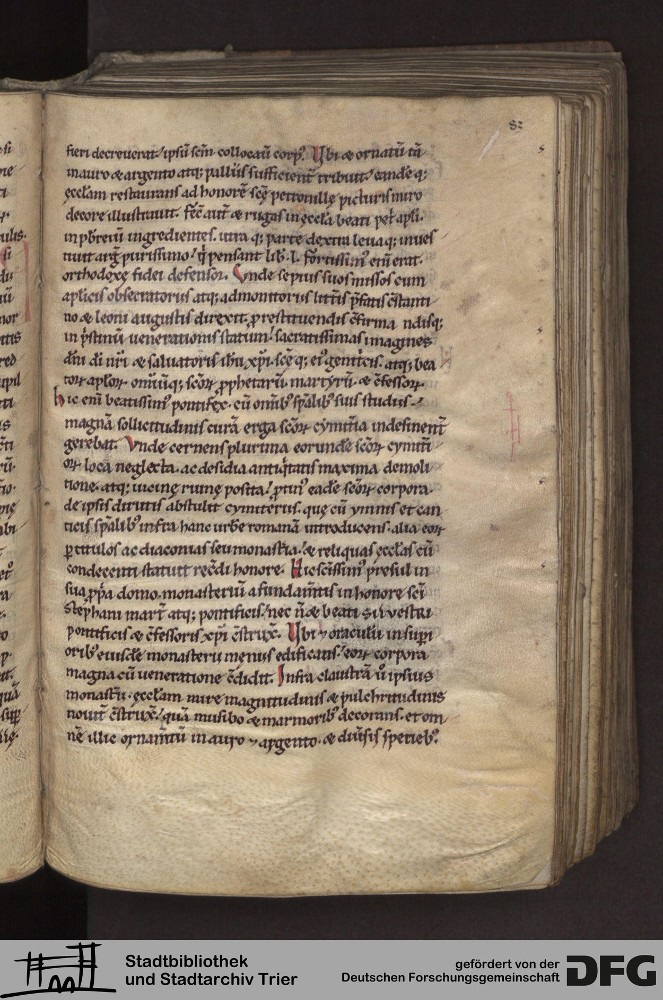 82
fieri decreuerat, ipsū scm̄ collocauᷓ corp᷒. Vbi & ornatū tā
in auro & argento atq; palliis sufficient̄ tribuit, eandē q;
ęccłam restaurans ad honorē scę petronille picturis miro
decore illustrauit. fec̄ aut̄ & rugas in ęccła beati pet͛ apłi.
in pb̄reriū ingredientes. utraq; parte dextra leuaq; inues
tiuit arḡ purissimo, q̄ pensant lib᷒. l. fortissim᷒ eni erat.
orthodoxę fidei defensor. Vnde sepius suos missos cum
aplicis obsecratoriis atq; admonitoriis litt̄is p̄fatis c̄stanti
no & leoni augustis direxit, p restituendis c̄firma ndisq;
in p̄stinū uenerationis statum, sacratissimas imagines
dn̄i di nr̄i & saluatoris ihū xp̄i. scę q; ei᷒ genitcis. atq; bea
toꝝ aploꝝ. omiūq; scōꝝ, prophetarū martyrū. & c̄fessoꝝ.
hic eni beatissim᷒ pontifex. cū om̄ib᷒ sp̄alib᷒ suis studiis.
magnā sollicitudinis curā erga scōꝝ cymit̄ia indesinent̄
gerebat. Vnde cernens plurima eorundē scōꝝ cymit̄i
oꝝ loca neglecta. ac desidia antiq̇tatis maxima demoli
tione. atq; uicinę ruinę posita,
de ipsis dirutis abstulit cymiteriis. quę cū ymnis et can
ticis sp̄alib᷒ infra hanc urbē romanā introducens. alia eoꝝ
ꝑ titulos ac diaconias seu monastia, & reliquas ęccłas cū
condecenti statuit recōdi honore. Hic sc̄issim᷒ p̄sul in
sua ppa domo. monasteriū a fundam̄tis in honore sci
Stephani mart̄ atq; pontificis, nec n̄ & beati siluestri
pontificis & c̄fessoris xp̄i c̄strux̄. Vbi & oraculū in supi
orib᷒ eiusdē monasterii menus edificans, eoꝝ corpora
magna cū ueneratione c̄didit. Infra claustrā u̇ ipsius
monastii. ęccłam mire magnitudinis & pulchritudinis
nouit̄ c̄strux̄, quā musibo & marmorib᷒ decorans. et om
nē illic ornam̄tū in auro & argento. & diūsis spetieb᷒.
Stadtbibliothek
und Stadtarchiv Trier
gefördert von der
Deutschen Forschungsgemeinschaft
DFG